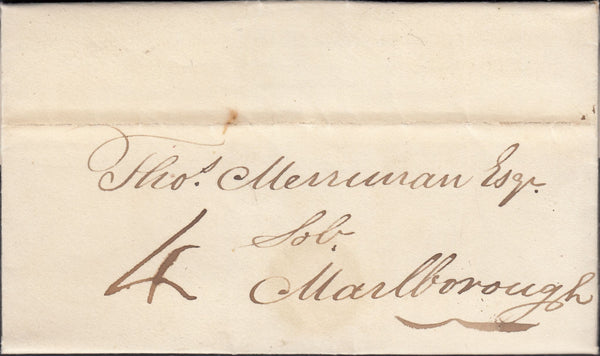 Thos. Merriman Esqr.
Sol.
4
Marlborough